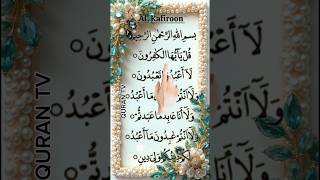 Al, Kafiroon
بِسْمِ اللّٰهِ الرَّحْمٰنِ الرَّحِيْمِ
قُلْ يٰٓاَيُّهَا الْكٰفِرُوْنَ
لَآ اَعْبُدُ مَا تَعْبُدُوْنَ
وَلَآ اَنْتُمْ عٰبِدُوْنَ مَآ اَعْبُدُ
وَلَآ اَنَا عَابِدٌ مَّا عَبَدْتُّمْ
وَلَآ اَنْتُمْ عٰبِدُوْنَ مَآ اَعْبُدُ
لَكُمْ دِيْنُكُمْ وَلِيَ دِيْنِ
QURAN TV